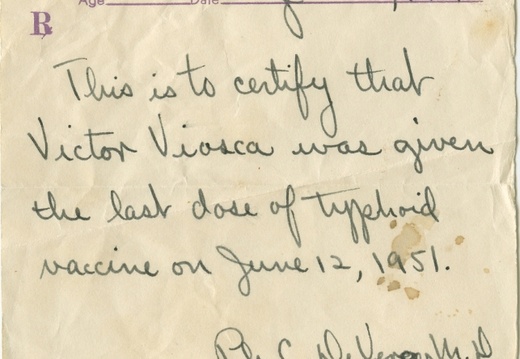 Age Date
℞
This is to certify that
Victor Viosca was given
the last dose of typhoid
vaccine on June 12, 1951.
M.D.